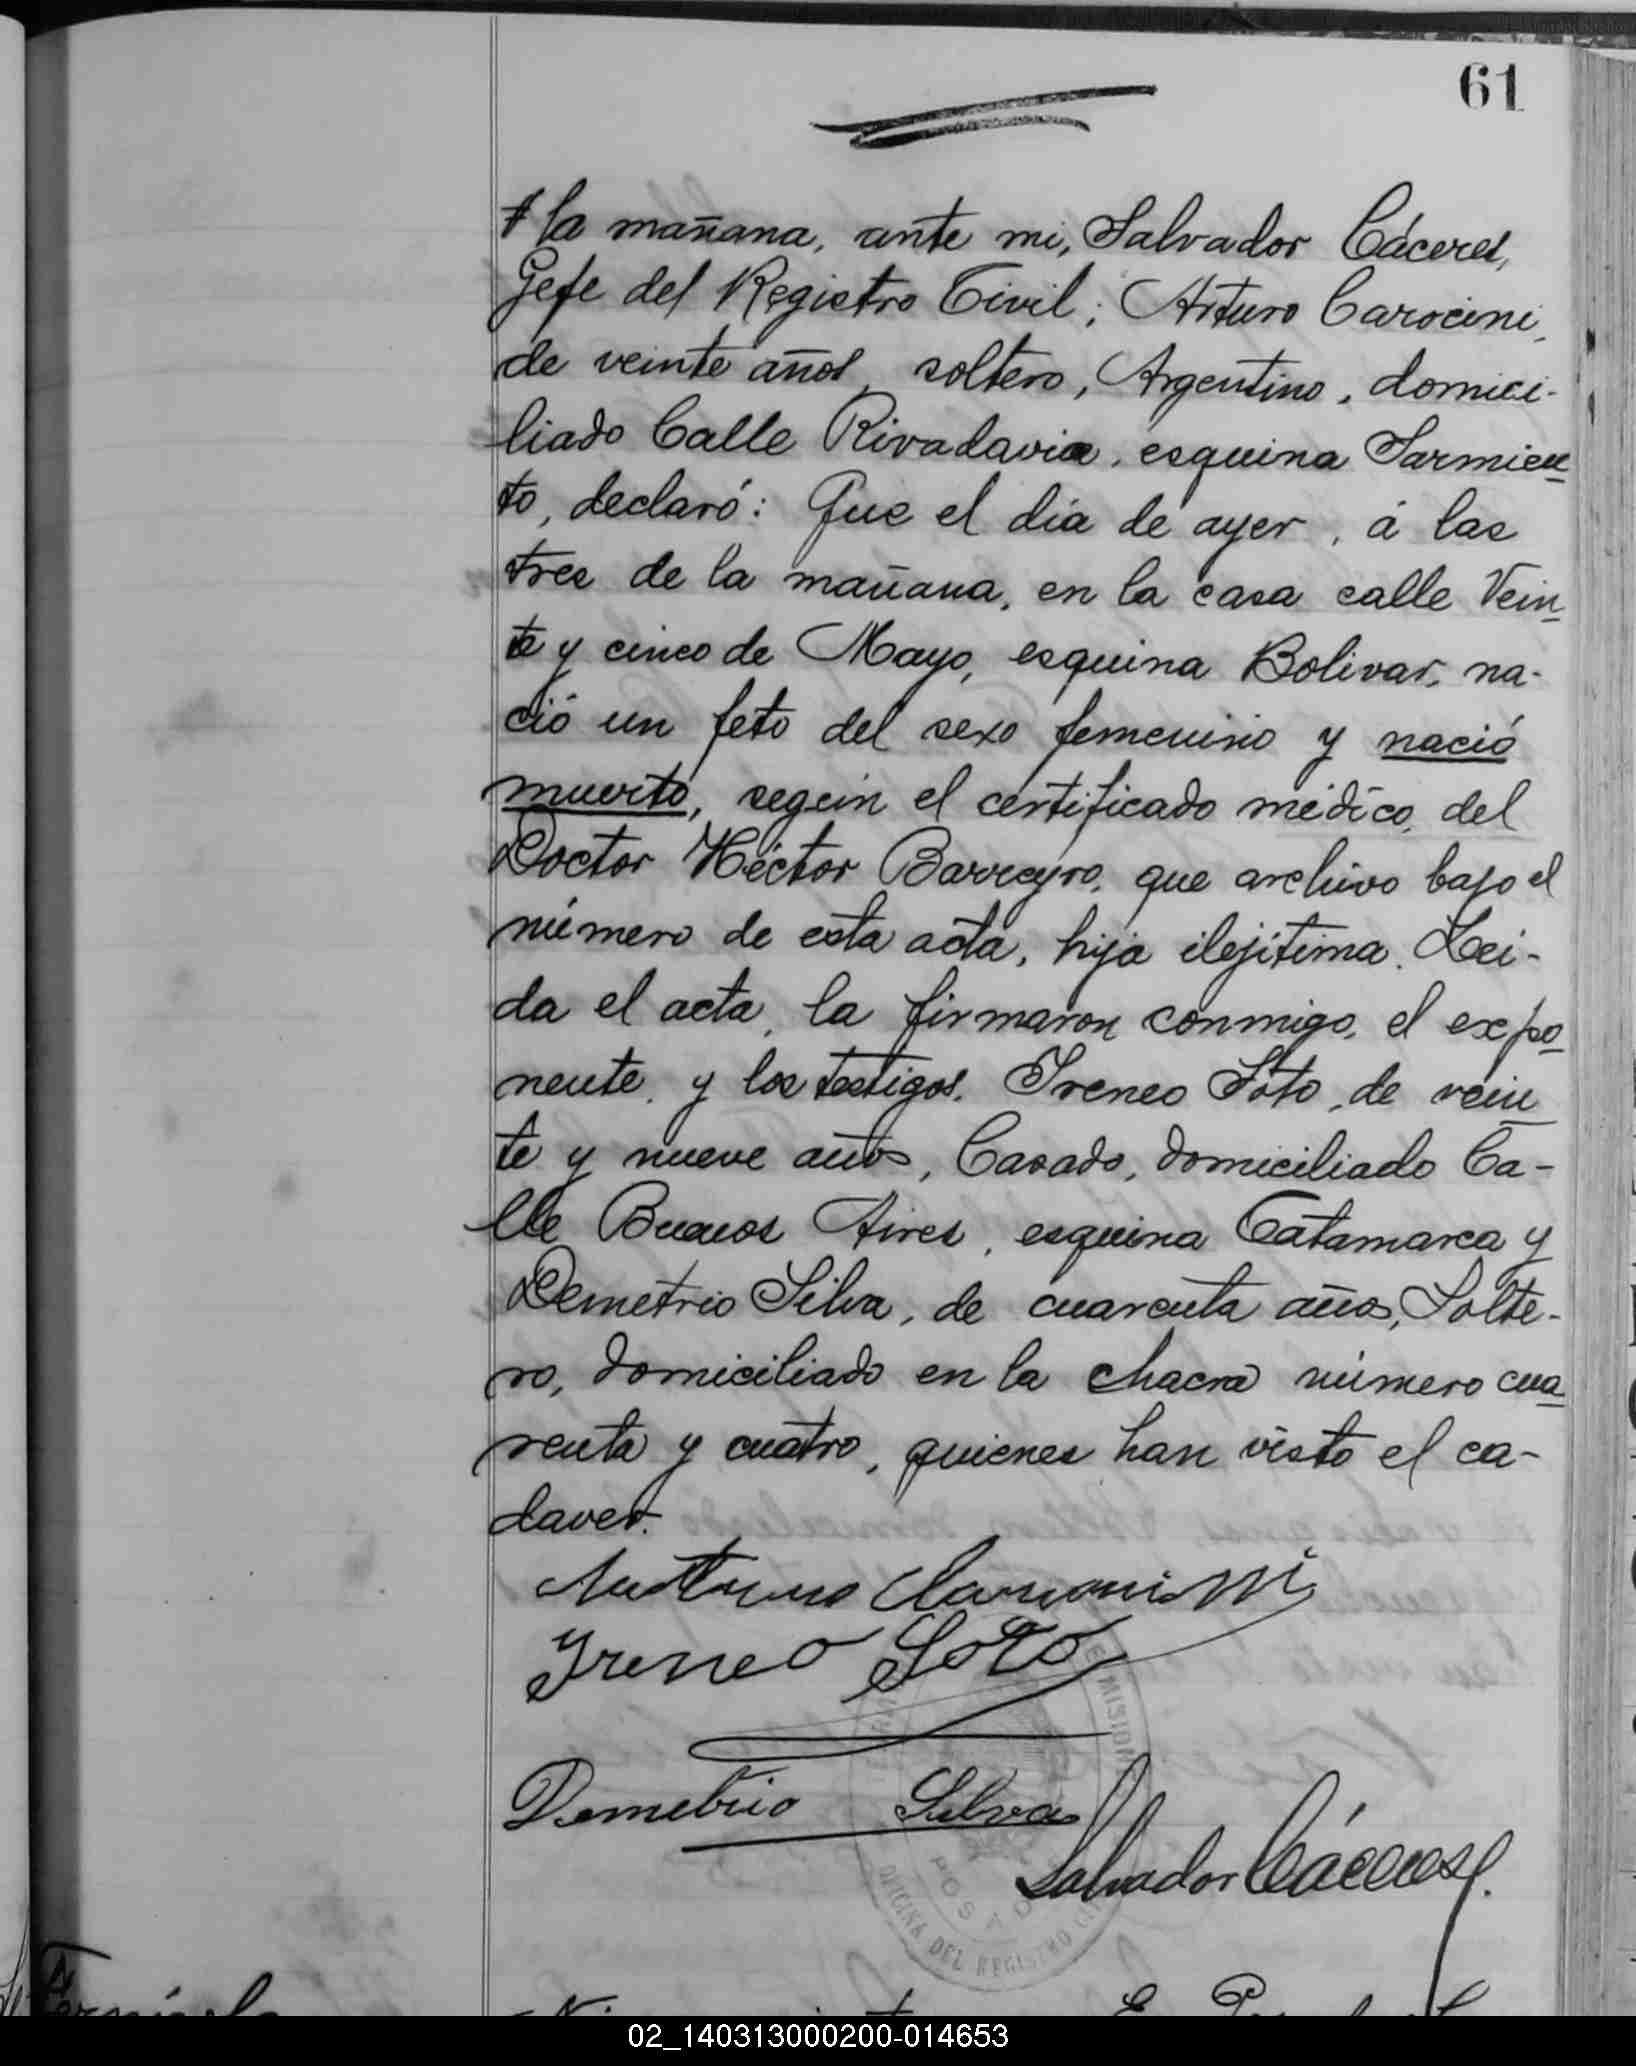 61
la mañana, ante mi, Salvador Cáceres,
Gefe del Registro Civil; Arturo Carocini,
de veinte años, soltero, Argentino, domici-
liado Calle Rivadavia, esquina Sarmien
to, declaró: Que el día de ayer, á las
tres de la mañana, en la casa calle Vein
te y cinco de Mayo, esquina Bolivar, na-
ció un feto del sexo femenino y nació
muerto, según el certificado médico, del
Doctor Héctor Barreyro, que archivo bajo el
número de esta acta, hija ilejítima. Lei-
da el acta, la firmaron conmigo, el expo
nente, y los testigos, Ireneo Soto, de vein
te y nueve años, Casado, domiciliado Ca-
lle Buenos Aires, esquina Catamarca y
Demetrio Silva, de cuarenta años, Solte-
ro, domiciliado en la chacra número cua
renta y cuatro, quienes han visto el ca-
daver.
Arturo
Ireneo Soto
Demetrio Silva
Salvador Cáceres
OFICINA DEL REGISTRO
02_140313000200-014653